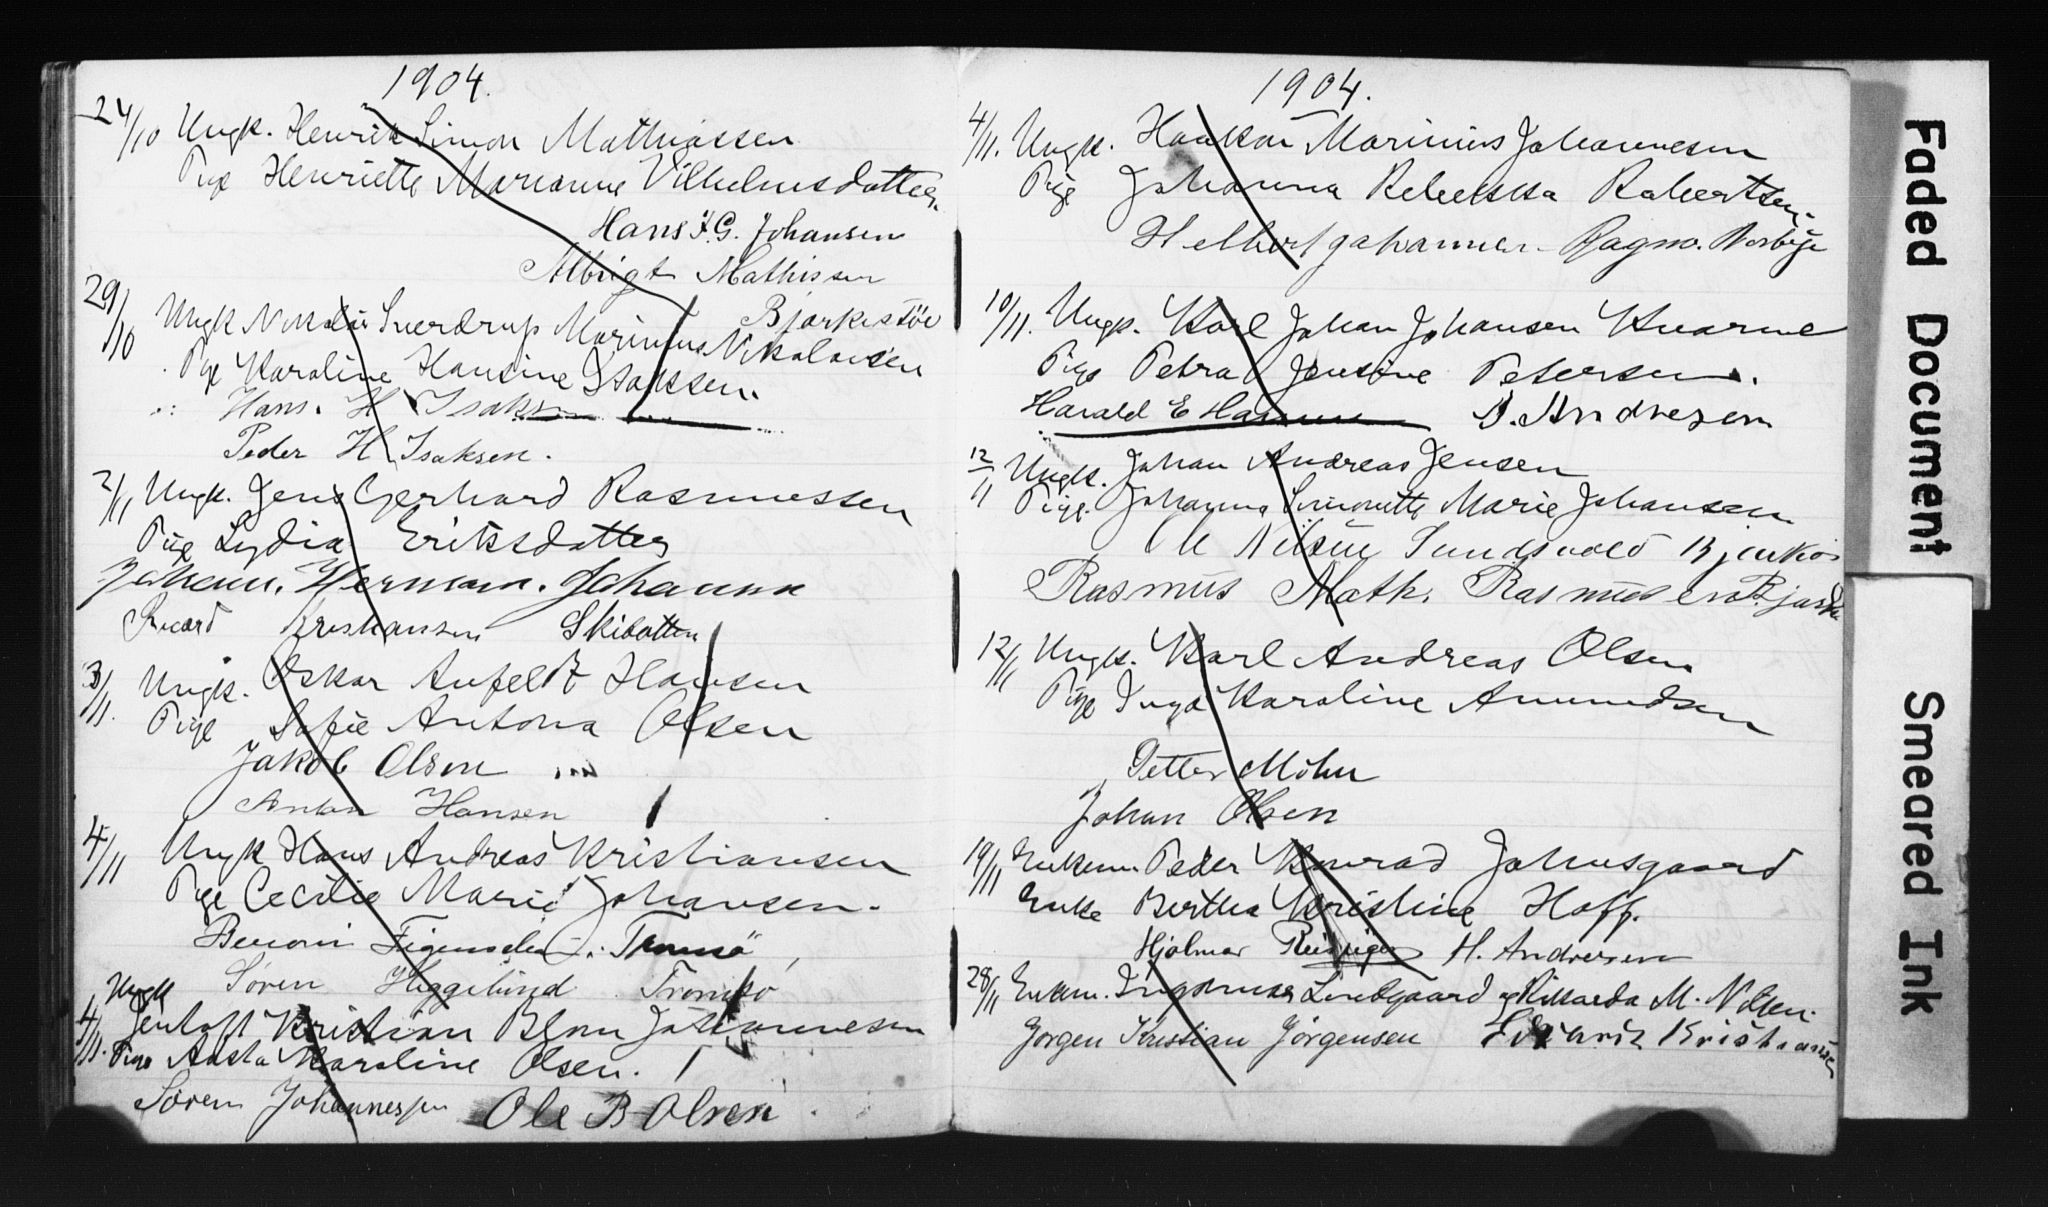 1904.
24/10 Ungk. Henrik Simon Mathiassen
Pige Henriette Marianne Vilhelmsdatter.
Hans F.G. Johansen
Albrigt Mathissen
Bjarkøe
29/10 Ungk Nikolai Sverdrup Marinius Nikolaisen
Pige Karoline Hansine Isaksen.
Hans. H Isaksen
Peder H. Isaksen.
2/11 Ungk. Jens Gerhard Rasmussen
Pige Lydia Eriksdatter
Johan. Herman. Johansen
Kristiansen Skibotten
3/11. Ungk. Oskar Anfeldt Hansen
Pige Sofie Antona Olsen
Jakob Olsen
Anton Hansen
4/11 Ungk Hans Andreas Kristiansen
Pige Cecilie Marie Johansen.
Benoni Figenschou. Tromsø
Søren Heggelund Tromsø
Ungk
4/11. Jentoft Kristian Blom Johannesen
Pige Aasta Karoline Olsen.
Søren Johannessen Ole B Olsen
1904.
4/11. Ungk. Haakon Marinius Johannesen
Pige Johanna Rebekka Robertsen.
10/11. Ungk. Karl Johan Johansen Kvarme
Pige Petra Jensine Petersen.
Harald E Hansen A. Andresen
12/11 Ungk. Johan Andreas Jensen
Pige. Johanna Simonette Marie Johansen
Ole Nilsen Sundsvold Bjarkøi
Rasmus Math. Rasmussen Bjarkø
12/11 Ungk. Karl Andreas Olsen
Pige Inga Karoline Amundsen
Petter Møhn
Johan Olsen
19/11 Enkem. Peder Konrad Johnsgaard
Enke Bertha Kristine Hoff.
Hjalmar H. Andresen
28/11 Enkem. Ingomar Lindgaard og Rikarda M. Nilsen.
Jørgen Kristian Jørgensen Edvard Kristiansen
Faded Document
Smeared Ink